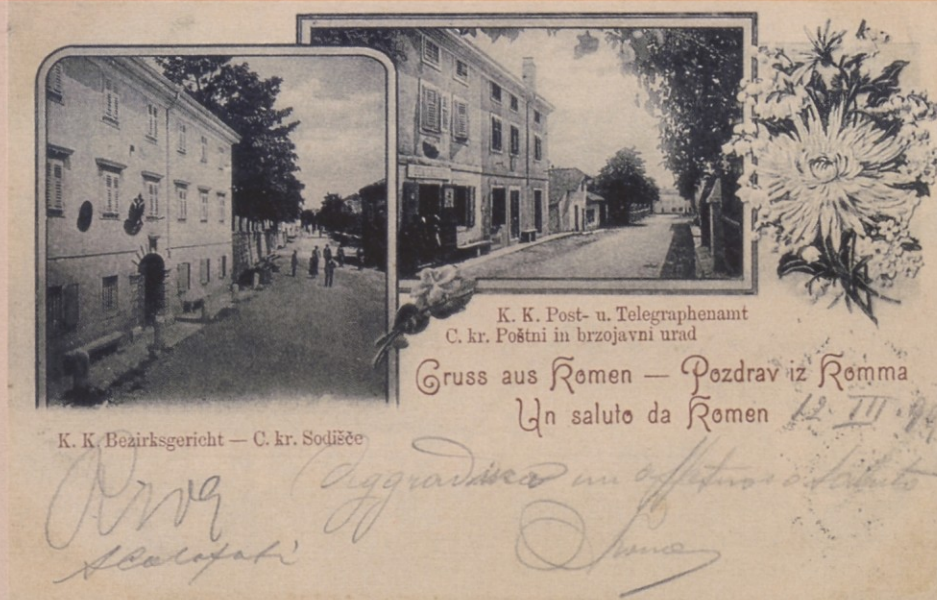 K. K. Post- u. Telegraphenamt
C. kr. Poštni in brzojavni urad
Gruss aus Komen — Pozdrav iz Komna
Un saluto da Komen
12. III.
K. K. Bezirksgericht — C. kr. Sodišče
un affettuoso saluto